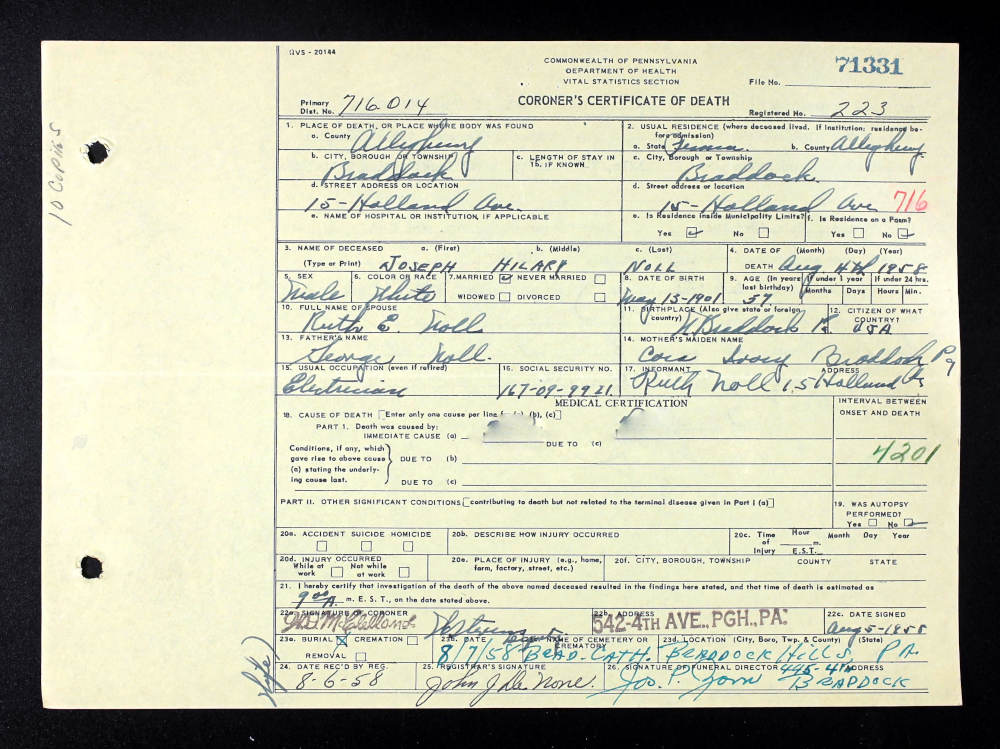 QVS - 20144
COMMONWEALTH OF PENNSYLVANIA
DEPARTMENT OF HEALTH
VITAL STATISTICS SECTION
File No. 71331
Primary Dist. No. 716014
CORONER'S CERTIFICATE OF DEATH
Registered No. 223
10 Copies
1. PLACE OF DEATH, OR PLACE WHERE BODY WAS FOUND
a. County Allegheny
b. CITY, BOROUGH OR TOWNSHIP Braddock
c. LENGTH OF STAY IN 1b. IF KNOWN
d. STREET ADDRESS OR LOCATION
15 - Holland Ave.
e. NAME OF HOSPITAL OR INSTITUTION, IF APPLICABLE
2. USUAL RESIDENCE (where deceased lived. If institution: residence before admission)
a. State Penna. b. County Allegheny
c. City, Borough or Township
Braddock.
d. Street address or location
15 - Holland Ave 716
e. Is Residence inside Municipality Limits? f. Is Residence on a Farm?
Yes No Yes No
3. NAME OF DECEASED a. (First) b. (Middle) c. (Last)
(Type or Print) JOSEPH HILARY NOLL
4. DATE OF DEATH (Month) (Day) (Year)
Aug 4th 1958
5. SEX Male
6. COLOR OR RACE White
7. MARRIED NEVER MARRIED
WIDOWED DIVORCED
8. DATE OF BIRTH
May 15-1901
9. AGE (In years last birthday) 57.
If under 1 year Months Days
If under 24 hrs. Hours Min.
10. FULL NAME OF SPOUSE
Ruth E. Noll
11. BIRTHPLACE (Also give state or foreign country) N Braddock Pa
12. CITIZEN OF WHAT COUNTRY?
USA
13. FATHER'S NAME
George Noll.
14. MOTHER'S MAIDEN NAME
Cora Ivory Braddock Pa
15. USUAL OCCUPATION (even if retired)
Electrician
16. SOCIAL SECURITY NO.
167-09-9921.
17. INFORMANT ADDRESS
Ruth Noll 15 Holland
MEDICAL CERTIFICATION
INTERVAL BETWEEN ONSET AND DEATH
18. CAUSE OF DEATH [Enter only one cause per line for (a), (b), (c)]
PART 1. Death was caused by:
IMMEDIATE CAUSE (a)
DUE TO (c)
Conditions, if any, which gave rise to above cause (a) stating the underlying cause last.
DUE TO (b)
DUE TO (c)
4201
PART II. OTHER SIGNIFICANT CONDITIONS [contributing to death but not related to the terminal disease given in Part I (a)]
19. WAS AUTOPSY PERFORMED?
Yes No
20a. ACCIDENT SUICIDE HOMICIDE
20b. DESCRIBE HOW INJURY OCCURRED
20c. Time of Injury Hour m. E.S.T. Month Day Year
20d. INJURY OCCURRED
While at work Not while at work
20e. PLACE OF INJURY (e.g., home, farm, factory, street, etc.)
20f. CITY, BOROUGH, TOWNSHIP COUNTY STATE
21. I hereby certify that investigation of the death of the above named deceased resulted in the findings here stated, and that time of death is estimated as
9 00 A. m. E. S. T., on the date stated above.
22a. SIGNATURE OF CORONER
McClelland
22b. ADDRESS
542-4TH AVE., PGH., PA.
22c. DATE SIGNED
Aug 5-1958
23a. BURIAL CREMATION
REMOVAL
23b. DATE
8/7/58
23c. NAME OF CEMETERY OR CREMATORY
BRAD. CATH.
23d. LOCATION (City, Boro, Twp. & County) (State)
BRADDOCK HILLS PA.
24. DATE REC'D BY REG.
8-6-58
25. REGISTRAR'S SIGNATURE
John J De None.
26. SIGNATURE OF FUNERAL DIRECTOR ADDRESS
Jos. P. Zorn 445-4th
BRADDOCK